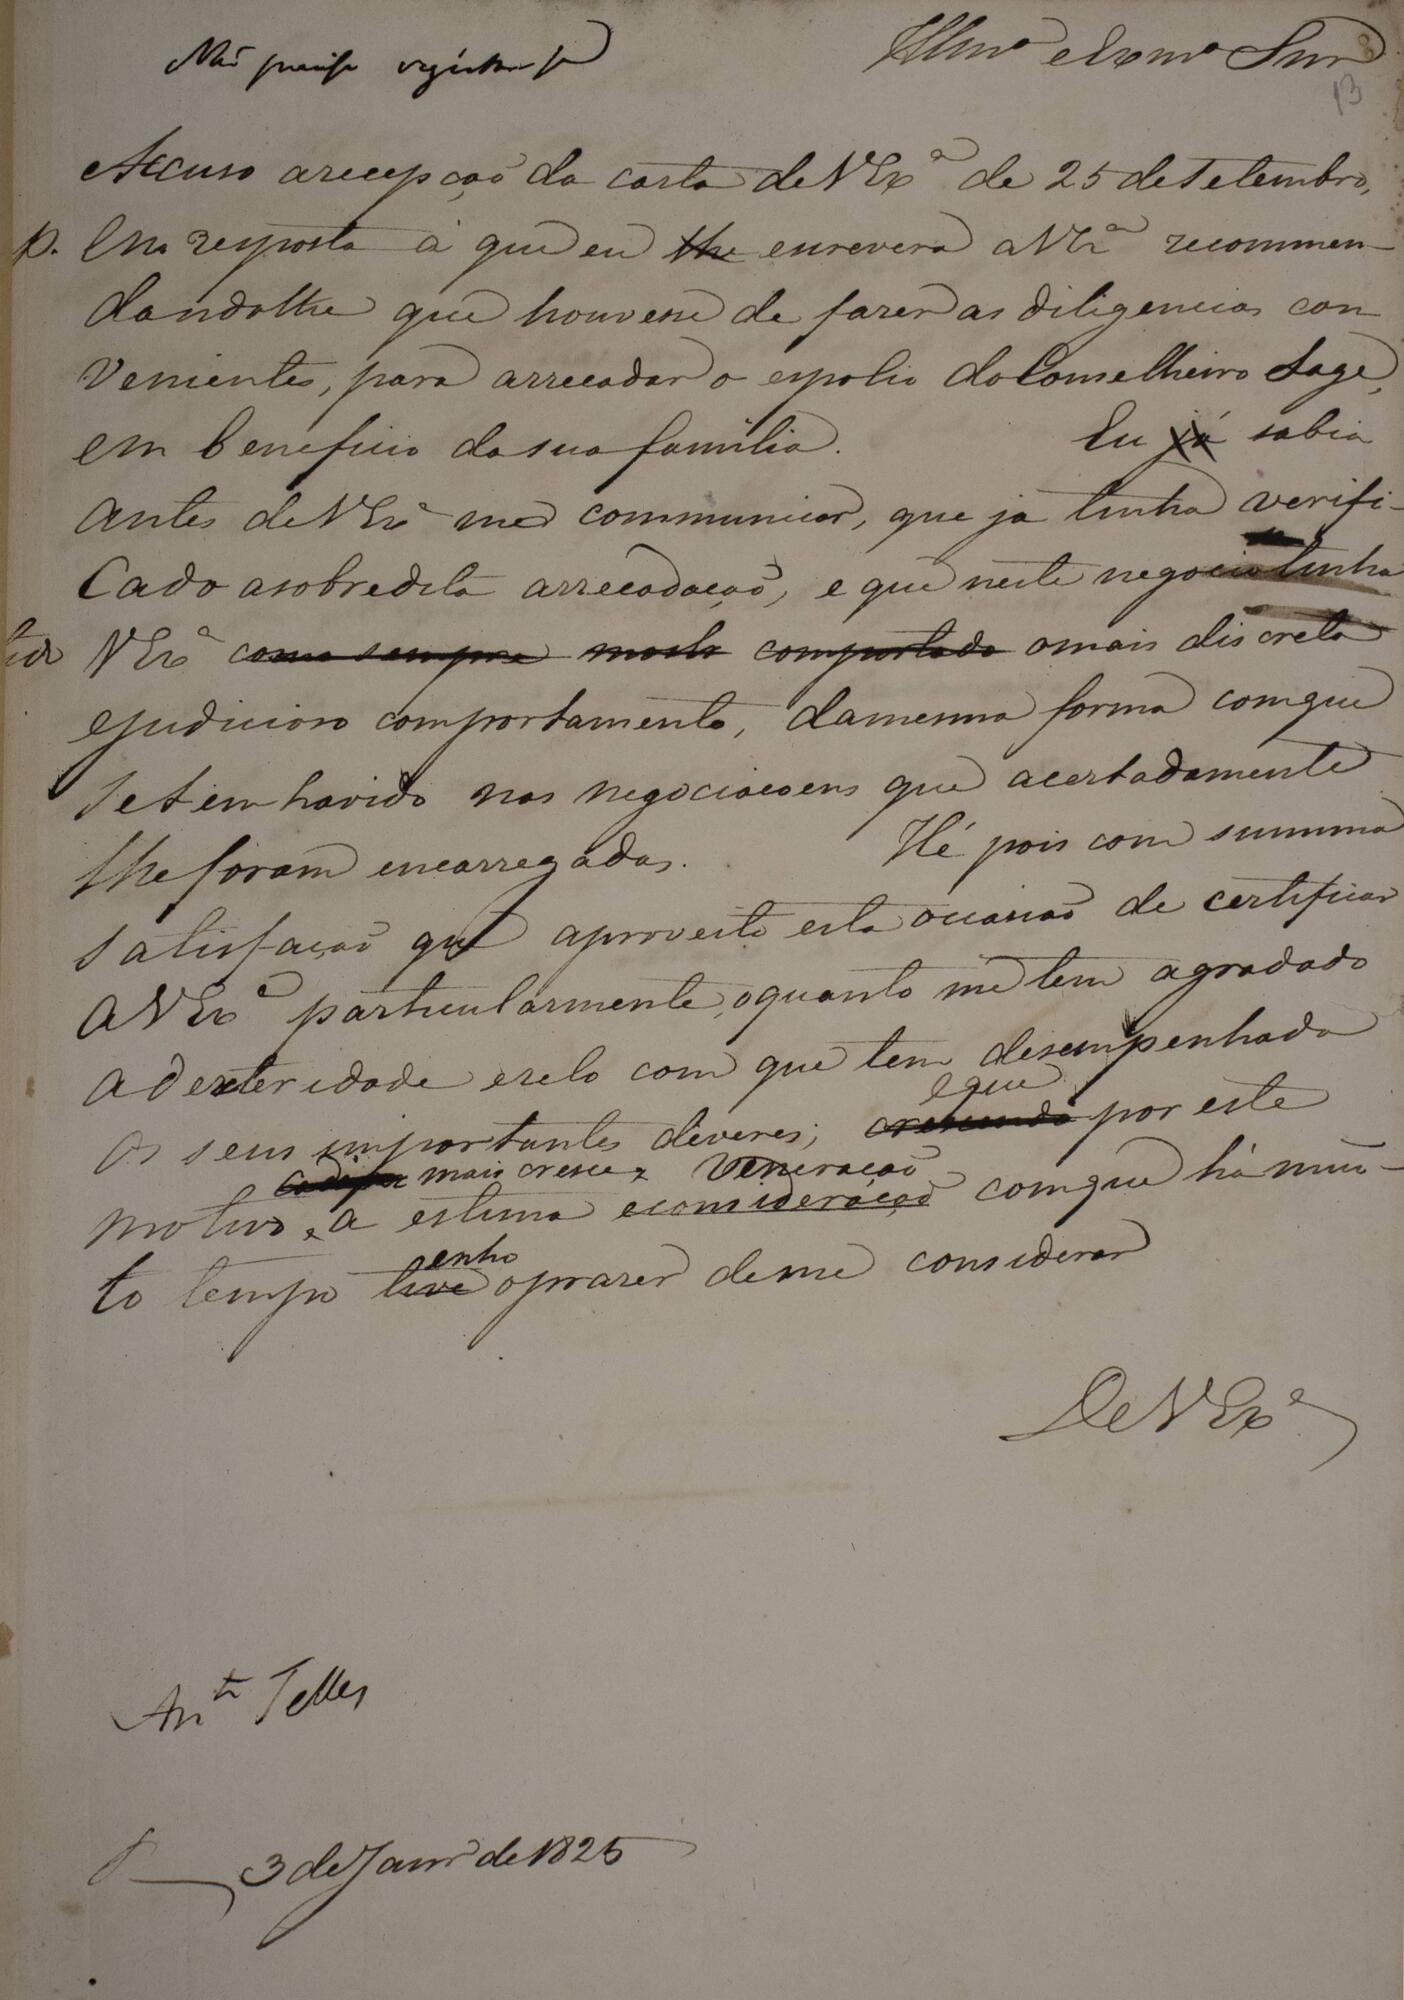 Não precisa registar se
Illmo e Exmo Snr
13
Accuso a recepção da carta de V Exª de 25 de Setembro,
p. Em resposta à que eu lhe escrevera a V Exª recommen-
dandolhe que houvesse de fazer as diligencias con
venientes, para arrecadar o espolio do Conselheiro Lage,
em beneficio da sua familia. Eu já sabia
antes de V Exª me communicar, que ja tinha verifi-
cado a sobredita arrecadação, e que neste negocio tinha
tido V Exª como sempre comportado o mais discreto
e judicioso comportamento, da mesma forma com que
se tem havido nas negociacoens que acertadamente
lhe foram encarregadas. Hé pois com summa
satisfação que aproveito esta occasião de certificar
a V Exª particularmente, o quanto me tem agradado
a dexteridade e zelo com que tem desempenhado
e que
os seus importantes deveres; crescendo por este
mais cresce a veneração
motivo, a estima e consideração com que há mui-
enho
to tempo tive o prazer de me considerar
De V Exª
Anto Telles
3 de Janro de 1825